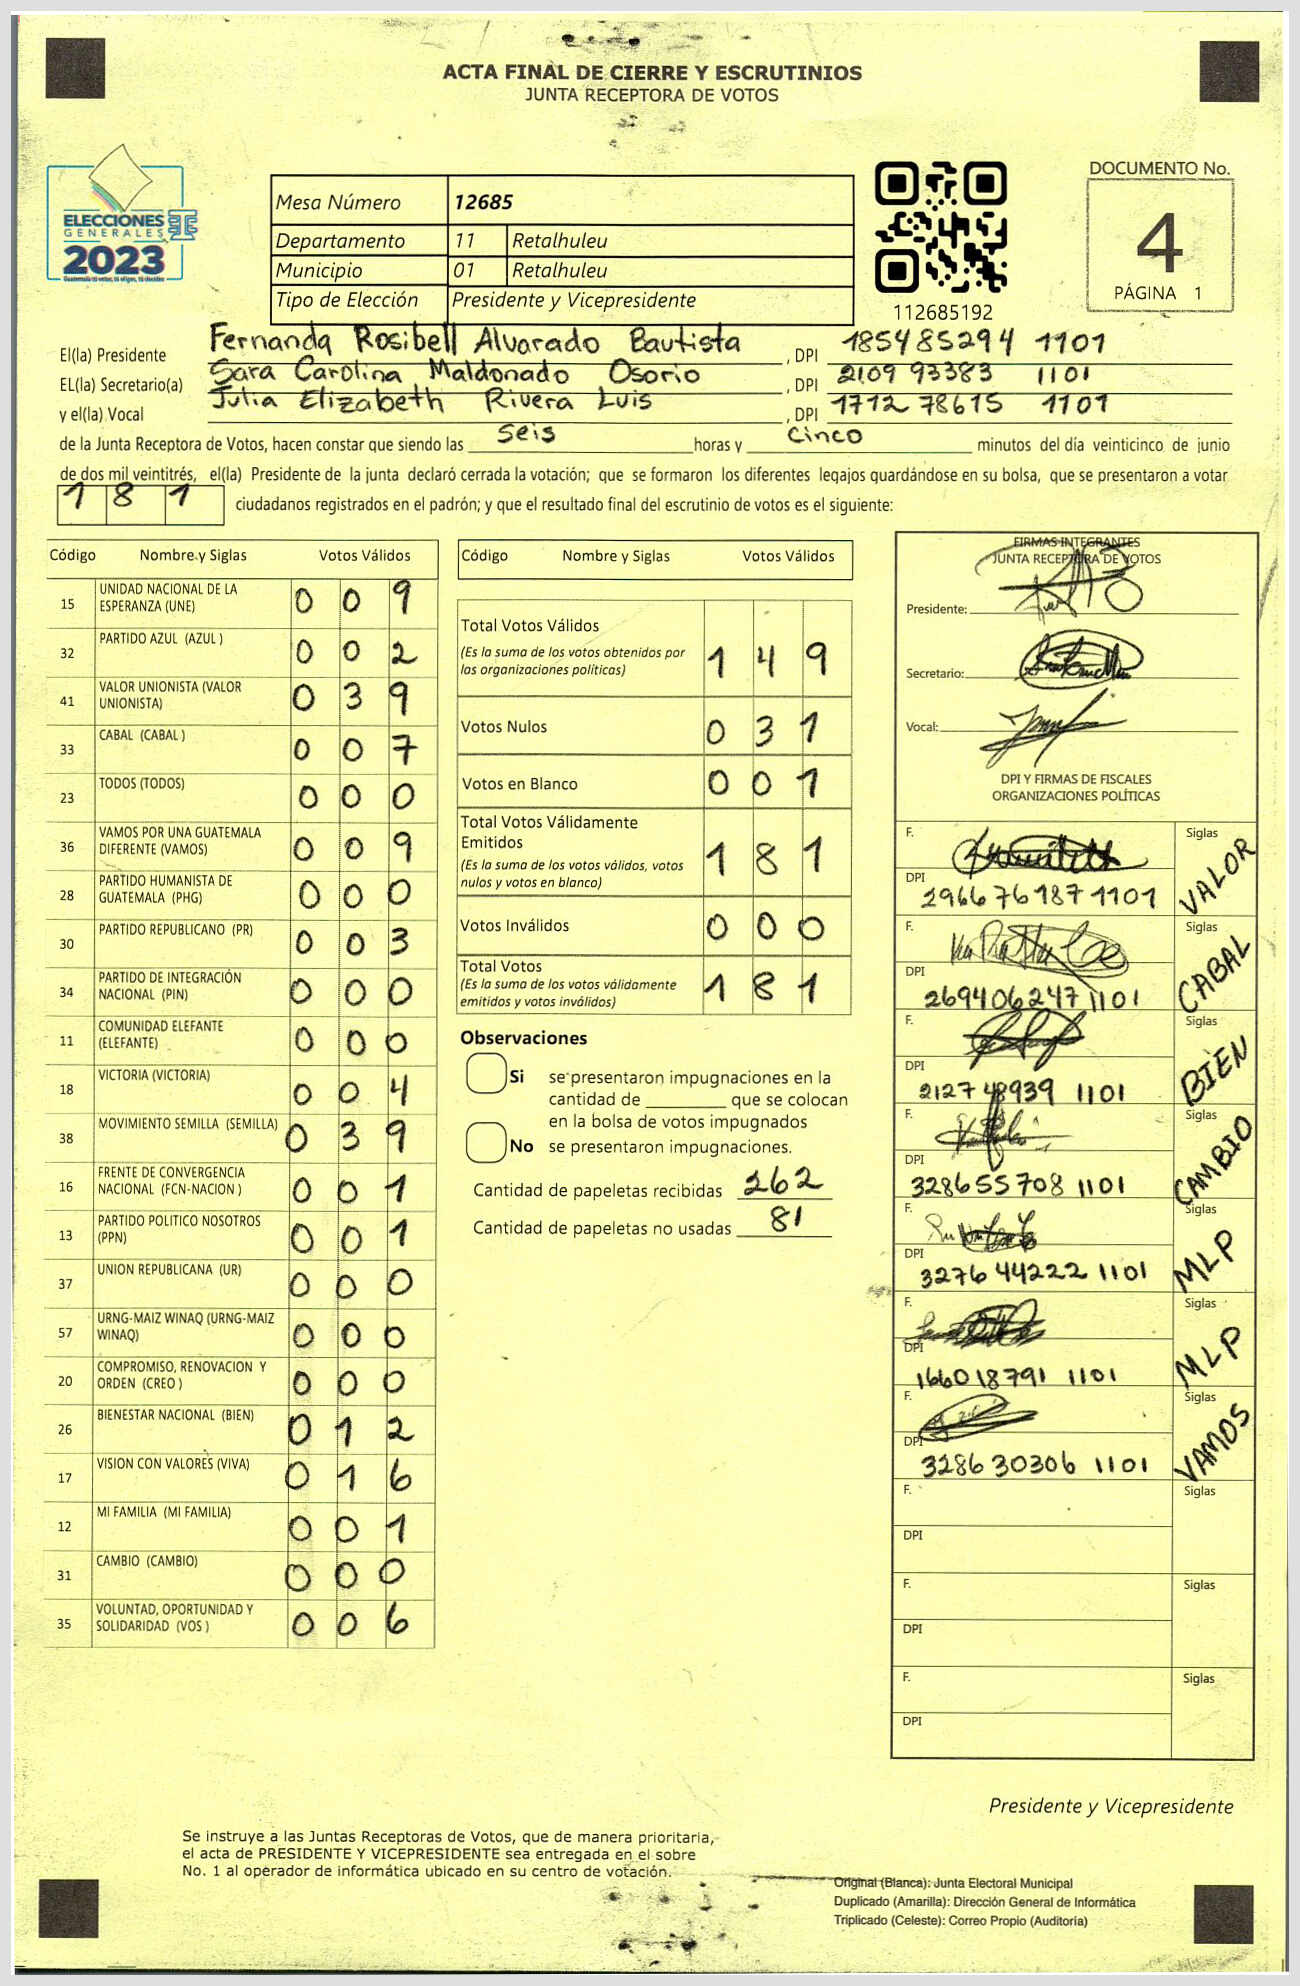 ACTA FINAL DE CIERRE Y ESCRUTINIOS
JUNTA RECEPTORA DE VOTOS
ELECCIONES
GENERALES
2023
Mesa Número 12685
Departamento 11 Retalhuleu
Municipio 01 Retalhuleu
Tipo de Elección Presidente y Vicepresidente
112685192
DOCUMENTO No.
4
PÁGINA 1
El(la) Presidente Fernanda Rosibell Alvarado Bautista, DPI 185485294 1101
EL(la) Secretario(a) Sara Carolina Maldonado Osorio, DPI 2109 93383 1101
y el(la) Vocal Julia Elizabeth Rivera Luis, DPI 1712 78615 1101
de la Junta Receptora de Votos, hacen constar que siendo las seis horas y cinco minutos del día veinticinco de junio
de dos mil veintitrés, el(la) Presidente de la junta declaró cerrada la votación; que se formaron los diferentes legajos guardándose en su bolsa, que se presentaron a votar
181 ciudadanos registrados en el padrón; y que el resultado final del escrutinio de votos es el siguiente:
Código Nombre y Siglas Votos Válidos
15 UNIDAD NACIONAL DE LA ESPERANZA (UNE) 0 0 9
32 PARTIDO AZUL (AZUL ) 0 0 2
41 VALOR UNIONISTA (VALOR UNIONISTA) 0 3 9
33 CABAL (CABAL ) 0 0 7
23 TODOS (TODOS) 0 0 0
36 VAMOS POR UNA GUATEMALA DIFERENTE (VAMOS) 0 0 9
28 PARTIDO HUMANISTA DE GUATEMALA (PHG) 0 0 0
30 PARTIDO REPUBLICANO (PR) 0 0 3
34 PARTIDO DE INTEGRACIÓN NACIONAL (PIN) 0 0 0
11 COMUNIDAD ELEFANTE (ELEFANTE) 0 0 0
18 VICTORIA (VICTORIA) 0 0 4
38 MOVIMIENTO SEMILLA (SEMILLA) 0 3 9
16 FRENTE DE CONVERGENCIA NACIONAL (FCN-NACION ) 0 0 1
13 PARTIDO POLITICO NOSOTROS (PPN) 0 0 1
37 UNION REPUBLICANA (UR) 0 0 0
57 URNG-MAIZ WINAQ (URNG-MAIZ WINAQ) 0 0 0
20 COMPROMISO, RENOVACION Y ORDEN (CREO ) 0 0 0
26 BIENESTAR NACIONAL (BIEN) 0 1 2
17 VISION CON VALORES (VIVA) 0 1 6
12 MI FAMILIA (MI FAMILIA) 0 0 1
31 CAMBIO (CAMBIO) 0 0 0
35 VOLUNTAD, OPORTUNIDAD Y SOLIDARIDAD (VOS ) 0 0 6
Código Nombre y Siglas Votos Válidos
Total Votos Válidos 1 4 9
(Es la suma de los votos obtenidos por
las organizaciones políticas)
Votos Nulos 0 3 1
Votos en Blanco 0 0 1
Total Votos Válidamente
Emitidos 1 8 1
(Es la suma de los votos válidos, votos
nulos y votos en blanco)
Votos Inválidos 0 0 0
Total Votos 1 8 1
(Es la suma de los votos válidamente
emitidos y votos inválidos)
Observaciones
Si se presentaron impugnaciones en la
cantidad de ________ que se colocan
en la bolsa de votos impugnados
No se presentaron impugnaciones.
Cantidad de papeletas recibidas 262
Cantidad de papeletas no usadas 81
FIRMAS INTEGRANTES
JUNTA RECEPTORA DE VOTOS
Presidente:
Secretario:
Vocal:
DPI Y FIRMAS DE FISCALES
ORGANIZACIONES POLÍTICAS
F. Siglas VALOR
DPI 2966 76187 1101
F. Siglas CABAL
DPI 269406247 1101
F. Siglas BIEN
DPI 2127 48939 1101
F. Siglas CAMBIO
DPI 328655708 1101
F. Siglas MLP
DPI 3276 44222 1101
F. Siglas MLP
DPI 166018791 1101
F. Siglas VAMOS
DPI 3286 30306 1101
F. Siglas
DPI
F. Siglas
DPI
F. Siglas
DPI
Presidente y Vicepresidente
Se instruye a las Juntas Receptoras de Votos, que de manera prioritaria,
el acta de PRESIDENTE Y VICEPRESIDENTE sea entregada en el sobre
No. 1 al operador de informática ubicado en su centro de votación.
Original (Blanca): Junta Electoral Municipal
Duplicado (Amarilla): Dirección General de Informática
Triplicado (Celeste): Correo Propio (Auditoría)